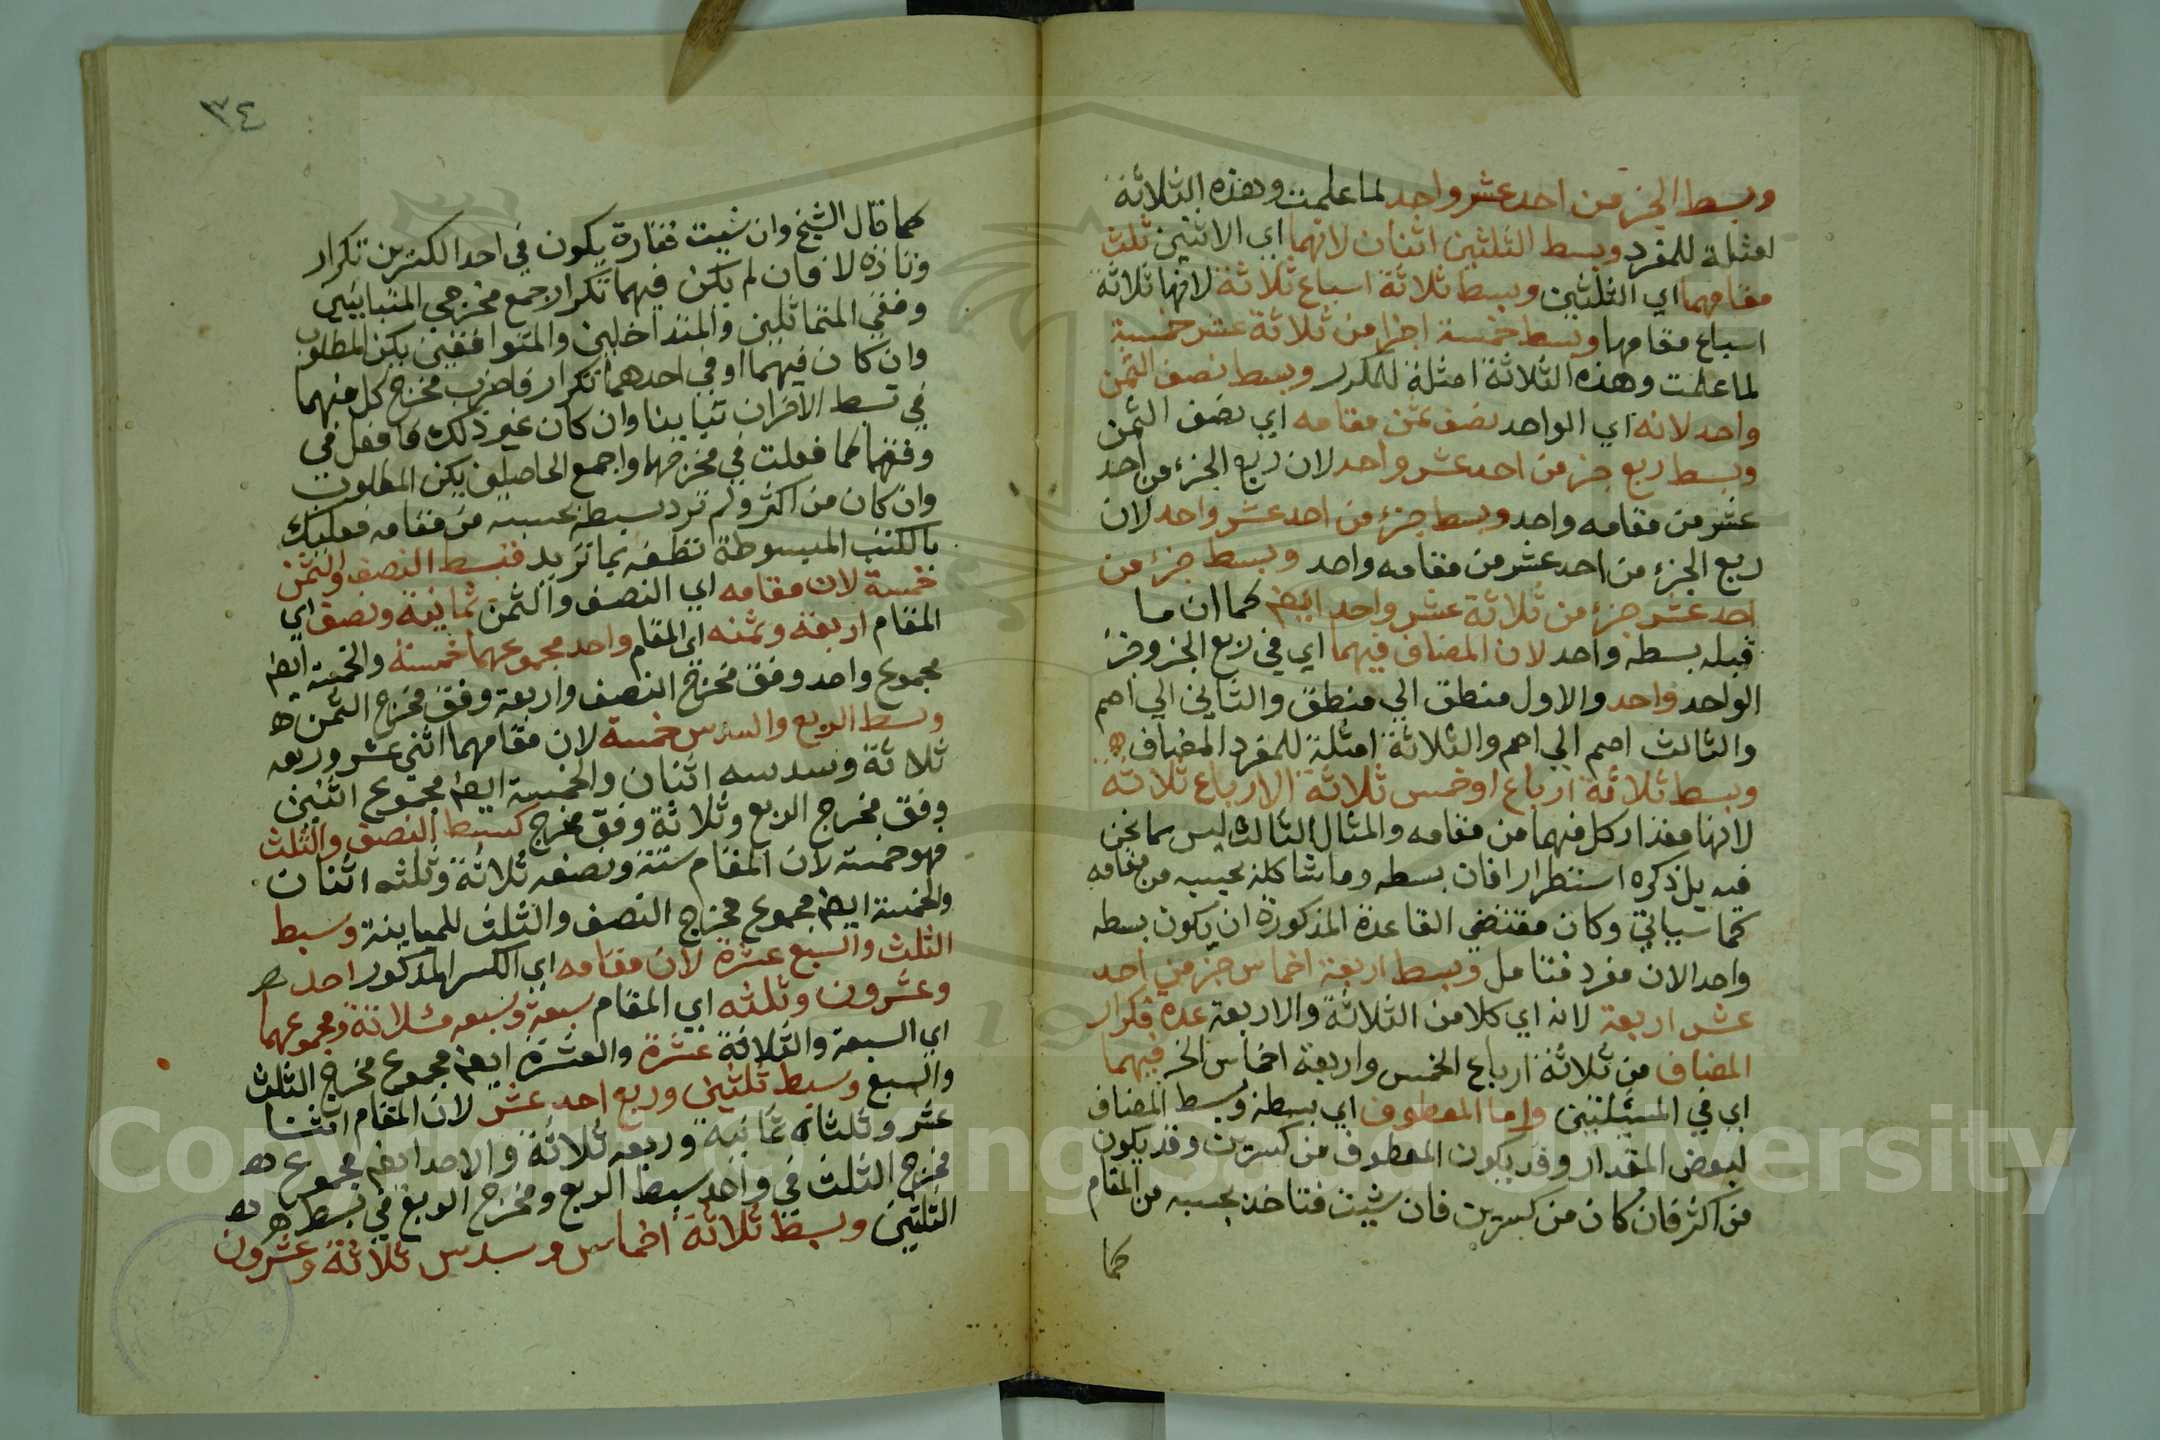 وبسط الجزء من احد عشر واحد لما علمت وهذه الثلاثة
امثلة للمفرد وبسط الثلثين اثنان لانهما اي الاثنين ثلث
مقامهما اي الثلثين وبسط ثلاثة اسباع ثلاثة لانها ثلاثة
اسباع مقامها وبسط خمسة اجزا من ثلاثة عشر خمسة
لما علمت وهذه الثلاثة امثلة للمكرر وبسط نصف الثمن
واحد لانه اي الواحد نصف ثمن مقامه اي نصف الثمن
وبسط ربع جز من احد عشر واحد لان ربع الجزء من احد
عشر من مقامه واحد وبسط جزء من احد عشر واحد لان
ربع الجزء من احد عشر من مقامه واحد وبسط جزء من
احد عشر جزء من ثلاثة عشر واحد ايضا كما ان ما
قبله بسطه واحد لان المضاف فيهما اي في ربع الجز وجزء
الواحد واحد والاول منطق الي منطق والثاني الي اصم
والثالث اصم الي اصم والثلاثة امثلة للمفرد المضاف
وبسط ثلاثة ارباع او خمس ثلاثة الارباع ثلاثة
لانها مقدار كل منهما من مقامه والمثال الثالث ليس مما نحن
فيه بل ذكره استطرارا فان بسطه وما شاكله بحسبه من مقامه
كما سياتي وكان مقتضي القاعدة المذكورة ان يكون بسطه
واحد الان مفرد فتامل وبسط اربعة اخماس جز من احد
عشر اربعة لانه اي كلا من الثلاثة والاربعة عدة تكرار
المضاف من ثلاثة ارباع الخمس واربعة اخماس الجز فيهما
اي في المسئلتين واما المعطوف اي بسطه وبسط المضاف
لبعض المقدار وقد يكون المعطوف من كسرين وقد يكون
من اكثر فان كان من كسرين فان شيت فتاخذ بحسبه من المقام
كما
٣٤
كما قال الشيخ وان شيت فتارة يكون في احد الكسرين تكرار
وتارة لا فان لم يكن فيهما تكرار جمع مخرجي المتباينين
ووفقي المتماثلين والمتداخلين والمتوافقين يكن المطلوب
وان كان فيهما او في احدهما تكرار فاضرب مخرج كل منهما
في بسط الاخران تباينا وان كان غير ذلك فافعل في
وفقهما كما فعلت في مخرجهما واجمع الحاصلين يكن المطلوب
وان كان من اكثر ولم ترد بسطه بحسبه من مقامه فعليك
بالكتب المبسوطة تظفر بما تريد فبسط النصف والثمن
خمسة لان مقامه اي النصف والثمن ثمانية ونصف اي
المقام اربعة وثمنه اي المقام واحد مجموعهما خمسة والخمسة ايضا
مجموع واحد وفق مخرج النصف واربعة وفق مخرج الثمن
وبسط الربع والسدس خمسة لان مقامهما اثني عشر وربعه
ثلاثة وسدسه اثنان والخمسة ايضا مجموع اثنين
وفق مخرج الربع وثلاثة وفق مخرج كبسط النصف والثلث
فهو خمسة لان المقام ستة ونصفه ثلاثة وثلثه اثنان
والخمسة ايضا مجموع مخرج النصف والثلث للمباينة وبسط
الثلث والسبع عشرة لان مقامه اي الكسر المذكور احد
وعشرون وثلثه اي المقام سبعة وسبعه ثلاثة ومجموعهما
اي السبعة والثلاثة عشرة والعشرة ايضا مجموع مخرج الثلث
والسبع وبسط ثلثين وربع احد عشر لان المقام اثنا
عشر وثلثاه ثمانية وربعه ثلاثة والاحد ايضا مجموع
مخرج الثلث في واحد بسط الربع ومخرج الربع في بسط
الثلثين وبسط ثلاثة اخماس وسدس ثلاثة وعشرون
Copyright © King Saud University